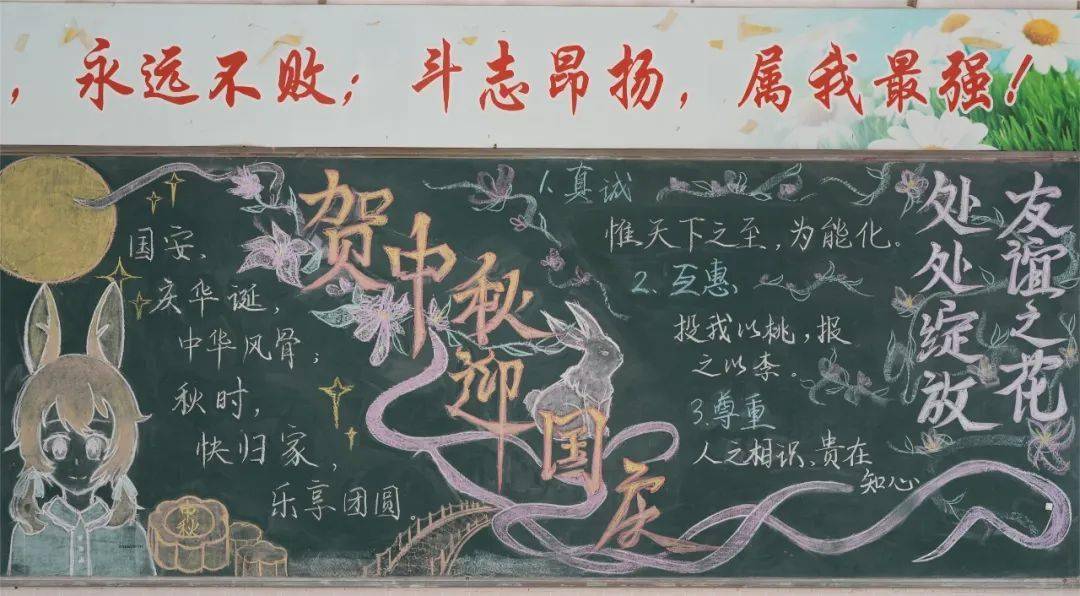 ，永远不败；斗志昂扬，属我最强！
国安、
庆华诞，
中华风骨；
秋时，
快归家，
乐享团圆。
中秋
贺中秋
迎国庆
1.真诚
惟天下之至，为能化。
2.互惠
投我以桃，报
之以李。
3.尊重
人之相识、贵在
知心
友谊之花
处处绽放